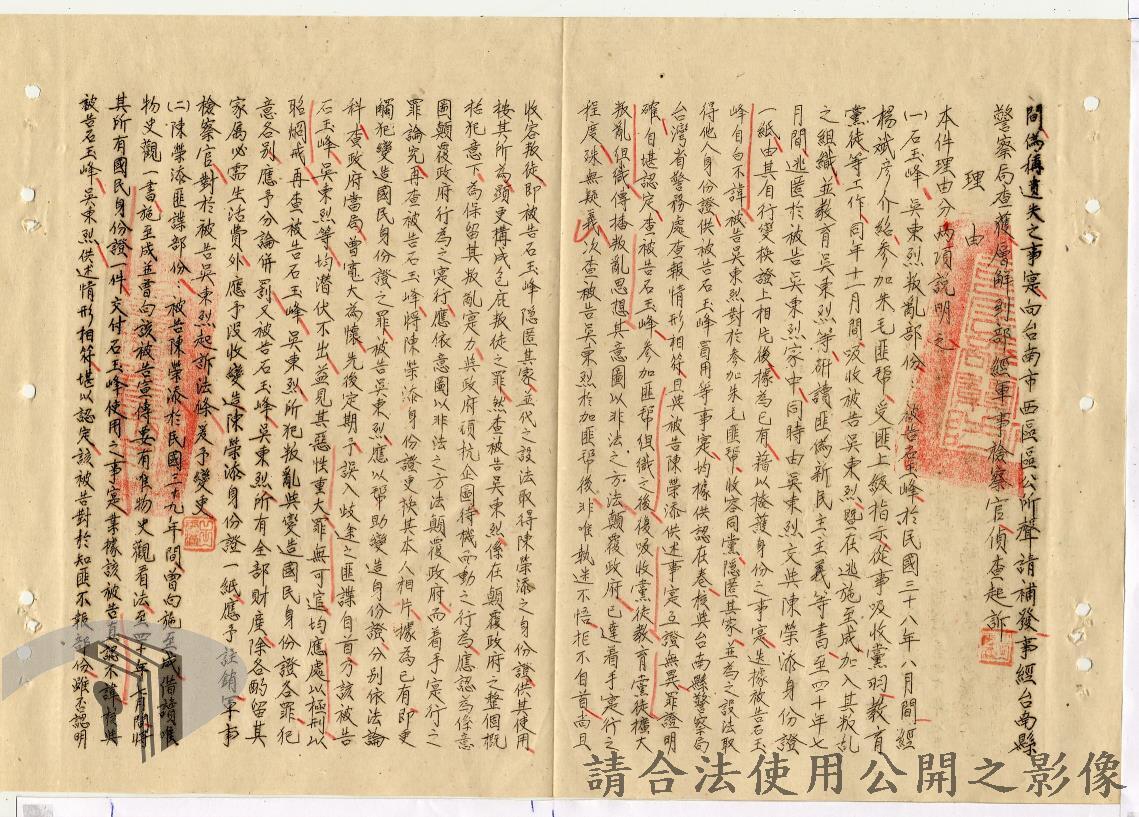 間偽稱遺失之事寔向台南市西區區公所聲請補發事經台南縣
警察局查獲層解到部經軍事檢察官偵查起訴
理由
本件理由分兩項說明之
(一)石玉峰、吳東烈叛亂部份：被告石玉峰於民國三十八年八月間經
楊斌彥介紹參加朱毛匪幫、受匪上級指示從事吸收黨羽教育
黨徒等工作同年十一月間吸收被告吳東烈暨在逃施至成加入其叛亂
之組織並教育吳東烈等研讀匪偽新民主主義等書至四十年七
月間逃匿於被告吳東烈家中同時由吳東烈交與陳榮添身份證
一紙由其自行變換證上相片後據為己有藉以掩護身份之事寔迭據被告石玉
峰自白不諱被告吳東烈對於參加朱毛匪幫收容同黨隱匿其家並為之設法取
得他人身份證供被告石玉峰冒用等事寔均據供認在卷核與台南縣警察局
台灣省警務處查報情形相符且與被告陳榮添供述事寔互證無異罪證明
確自堪認定查被告石玉峰參加匪幫組織之後後吸收黨徒教育黨徒擴大
叛亂組織傳播叛亂思想其意圖以非法之方法顛覆政府已達着手寔行之
程度殊無疑義次查被告吳東烈於加匪幫後非唯執迷不悟拒不自首尚且
收容叛徒即被告石玉峰隱匿其家並代之設法取得陳榮添之身份證供其使用
按其所為顯更構成包庇叛徒之罪然查被告吳東烈係在顛覆政府之整個概
括犯意下為保留其叛亂寔力與政府頑抗企圖待機而動之行為應認為係意
圖顛覆政府行為之寔行應依意圖以非法之方法顛覆政府而着手寔行之
罪論究再查被告石玉峰將陳榮添身份證更換其本人相片據為己有即更
觸犯變造國民身份證之罪被告吳東烈應以幫助變造身份證分別依法論
科查政府當局曾寬大為懷先後定期予誤入歧途之匪諜自首乃該被告
石玉峰吳東烈等均潛伏不出益見其惡性重大罪無可逭均應處以極刑以
昭烱戒再查被告石玉峰、吳東烈所犯叛亂與變造國民身份證各罪犯
意各別應予分論併罰又被告石玉峰吳東烈所有全部財產除各酌留其
家屬必需生活費外應予沒收變造陳榮添身份證一紙應予註銷軍事
檢察官對於被告吳東烈起訴法條爰予變更
(二)陳榮添匪諜部份、被告陳榮添於民國三十九年間曾向施至成借讀唯
物史觀一書施至成並嘗向該被告宣傳要有唯物史觀看法至四十年七月間將
其所有國民身份證一件交付石玉峰使用之事寔業據該被告自認不諱核與
被告石玉峰吳東烈供述情形相符堪以認定該被告對於知匪不報部份雖否認明
請合法使用公開之影像